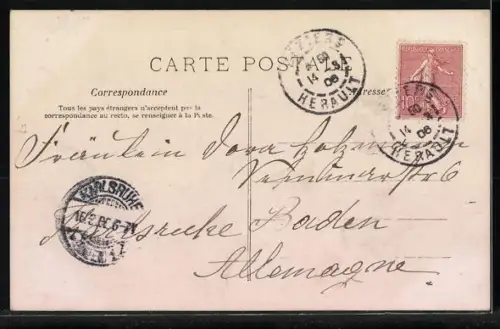 CARTE POSTALE
Correspondance
Adresse
Tous les pays étrangers n'acceptent pas la
correspondance au recto, se renseigner à la Poste.
BEZIERS
14
08
HERAULT
BEZIERS
14
08
HERAULT
Fräulein Dora
6
KARLSRUHE
Karlsruhe Baden
Allemagne